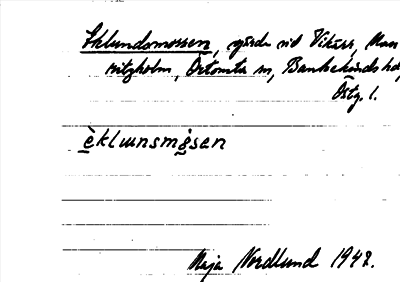 Eklundsmossen, gärde vid Vikárr, Mau
ritzholm, Örtomta sn, Bankekinds h
Östg. l.
èklɯnsmɷ̀sən
Maja Nordlund 1942.